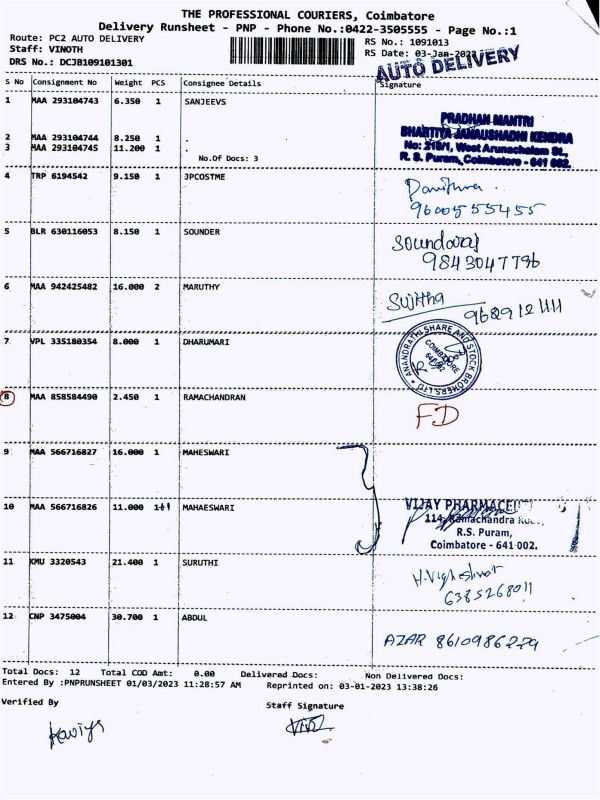 THE PROFESSIONAL COURIERS, Coimbatore
Delivery Runsheet - PNP - Phone No.:0422-3505555 - Page No.:1
Route: PC2 AUTO DELIVERY
RS No.: 1091013
Staff: VINOTH
RS Date: 03-Jan-2023
DRS No.: DCJB109101301
AUTO DELIVERY
S No Consignment No Weight PCS Consignee Details Signature
1 MAA 293104743 6.350 1 SANJEEVS
2 MAA 293104744 8.250 1 .
3 MAA 293104745 11.200 1 .
No.Of Docs: 3
PRADHAN MANTRI
BHARTIYA JANAUSHADHI KENDRA
No: 218/1, West Arunachalam St.,
R. S. Puram, Coimbatore - 641 002.
4 TRP 6194542 9.150 1 JPCOSTME
9600555455
5 BLR 630116053 8.150 1 SOUNDER
Soundaraj
9843047796
6 MAA 942425482 16.000 2 MARUTHY
Sujitha
7 VPL 335180354 8.000 1 DHARUMARI
ANANDRATHI SHARE AND STOCK BROKERS LTD
COIMBATORE
8 MAA 858584490 2.450 1 RAMACHANDRAN
FD
9 MAA 566716827 16.000 1 MAHESWARI
10 MAA 566716826 11.000 1+1 MAHAESWARI
VIJAY
114, Ramachandra
R.S. Puram,
Coimbatore - 641 002.
11 KMU 3320543 21.400 1 SURUTHI
H.Vigheshwar
6385268011
12 CNP 3475004 30.700 1 ABDUL
AZAR 8610986229
Total Docs: 12 Total COD Amt: 0.00 Delivered Docs: Non Delivered Docs:
Entered By :PNPRUNSHEET 01/03/2023 11:28:57 AM Reprinted on: 03-01-2023 13:38:26
Verified By
Staff Signature
Kaviya